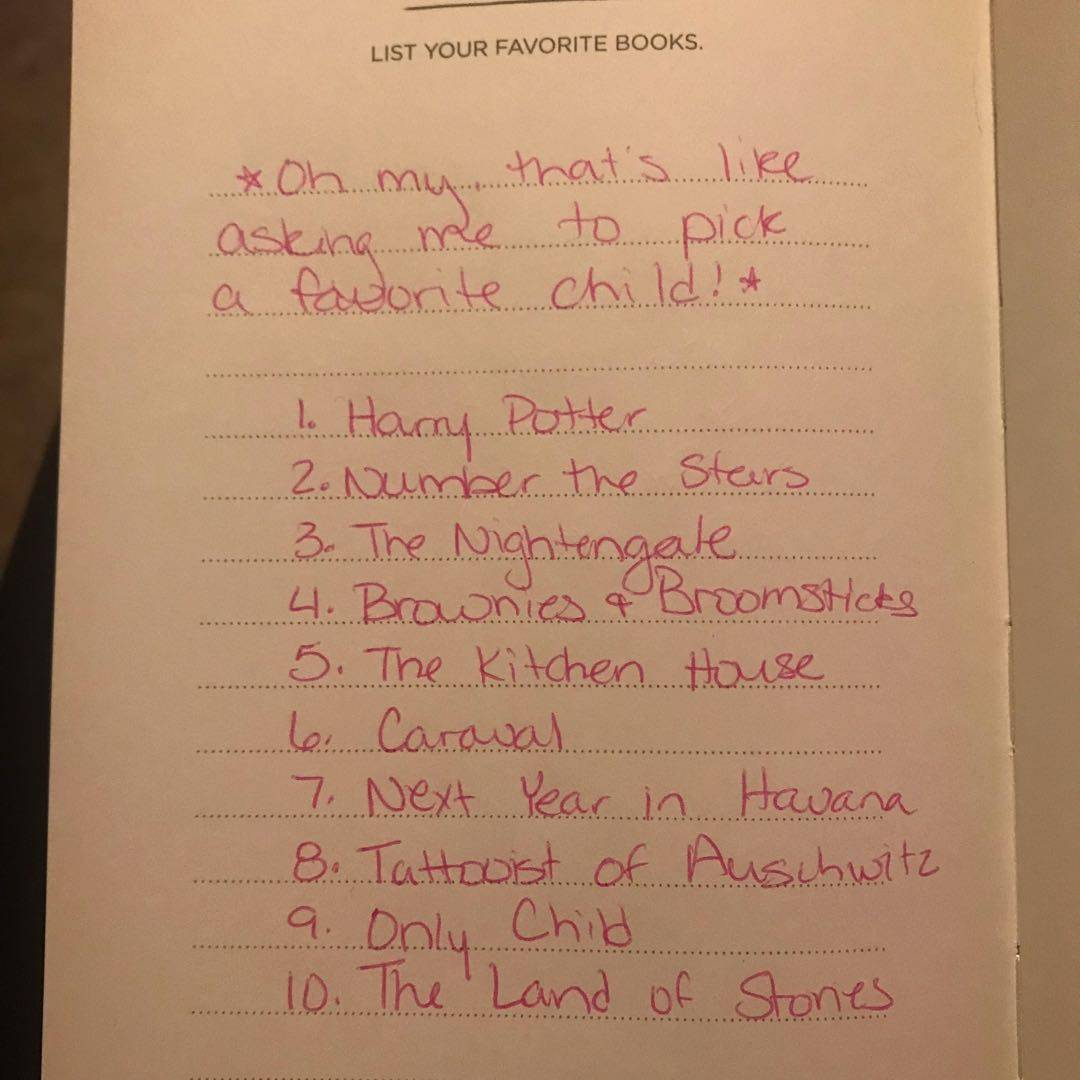 LIST YOUR FAVORITE BOOKS.
*Oh my, that's like
asking me to pick
a favorite child!*
1. Harry Potter
2. Number the Stars
3. The Nightengale
4. Brownies & Broomsticks
5. The Kitchen House
6. Caraval
7. Next Year in Havana
8. Tattooist of Auschwitz
9. Only Child
10. The Land of Stories